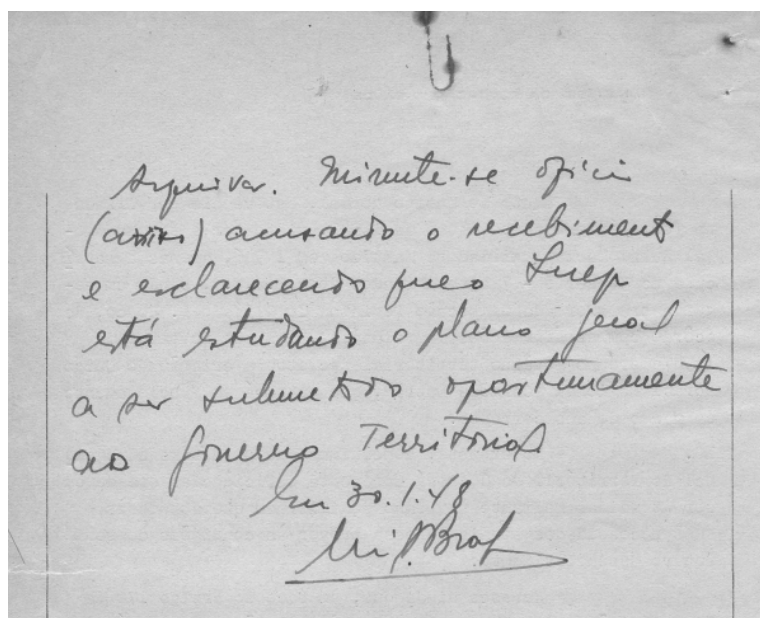 Arquivar. Minute-se ofício
(aviso) acusando o recebimento
e esclarecendo que o Inep
está estudando o plano geral
a ser submetido oportunamente
ao Governo Territorial
Em 30.1.48